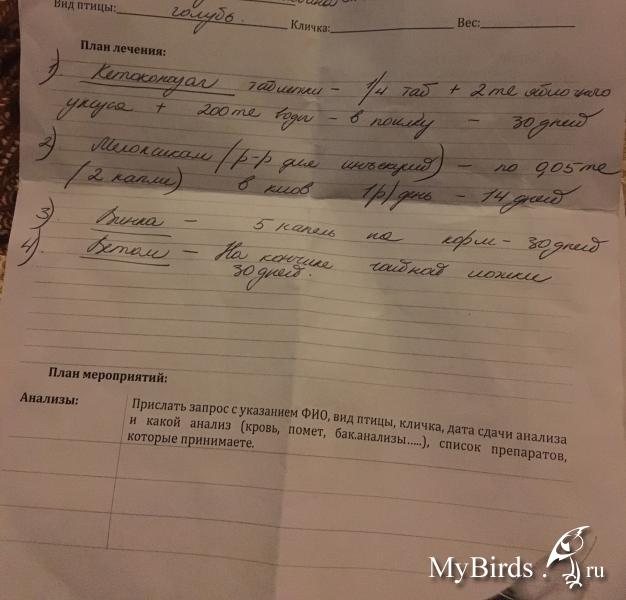 Вид птицы: голубь. Кличка: Вес:
План лечения:
1). Кетоконазол таблетки - 1/4 таб + 2 мл яблочного
уксуса + 200 мл воды - в поилку - 30 дней
2). Мелоксикам (р-р для инъекций) - по 0,05 мл
(2 капли) в клюв 1р/день - 14 дней
3). - 5 капель на корм - 30 дней
4). Ветом - На кончике чайной ложки
30 дней.
План мероприятий:
Анализы:
Прислать запрос с указанием ФИО, вид птицы, кличка, дата сдачи анализа
и какой анализ (кровь, помет, бак.анализы.....), список препаратов,
которые принимаете.
MyBirds.ru